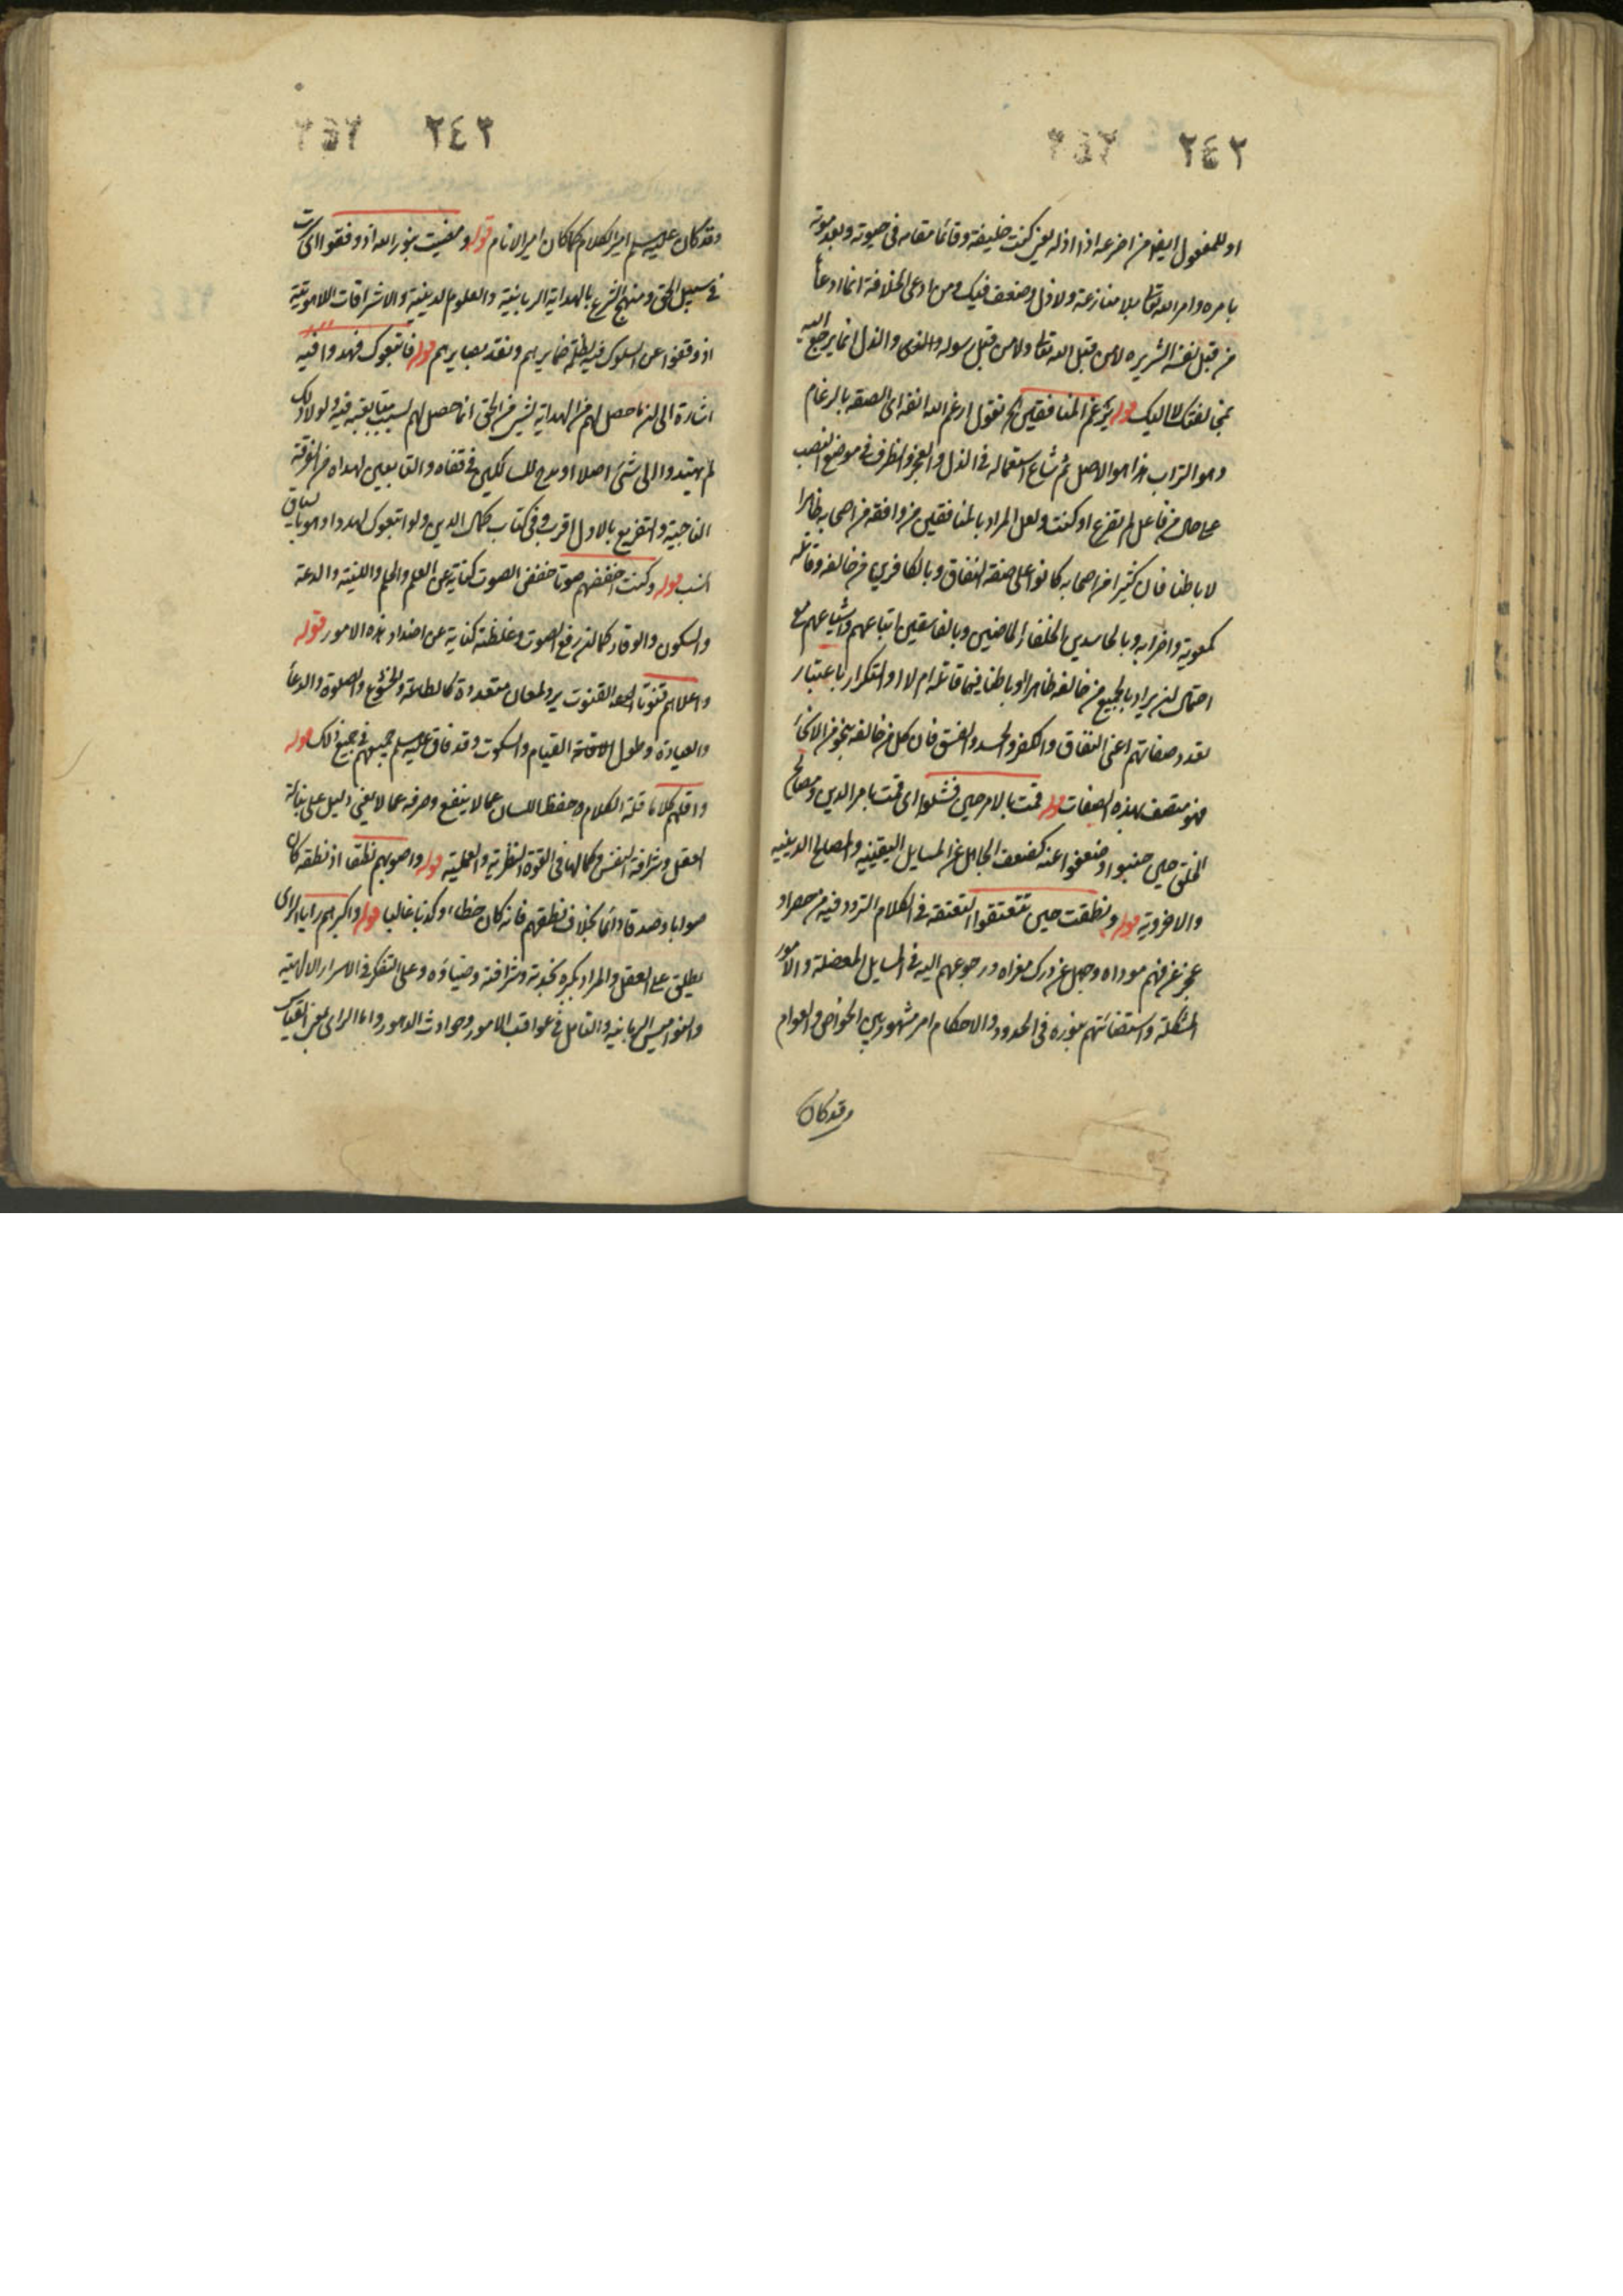 ٢٤٢
او للمفعول ايضا من اضرعه اذا اذله يعنى كنت خليفة وقائما مقامه فى حيوته وبعد موته
بامره وامر الله تعالى بلا منازعة ولا ذل وضعف فيك ومن ادعى الخلافة انما ادعا
من قبل نفسه الشريره لا من قبل الله تعالى ولا من قبل رسوله والذل انما يرجع اليه
بمخالفتك لا اليك قوله برغم المنافقين تقول ارغم الله انفه اى الصقه بالرغام
وهو التراب هذا هو الاصل ثم شاع استعماله فى الذل والعجز والظرف فى موضع النصب
على حال من فاعل لم تضرع او كنت ولعل المراد بالمنافقين من وافقه من اصحابه ظاهرا
لا باطنا فان كثيرا من اصحابه كانوا على صفة النفاق وبالكافرين من خالفه وقاتله
كمعوية واضرابه وبالحاسدين الخلفاء الماضين وبالفاسقين اتباعهم واشياعهم مع
احتمال ان يراد بالجميع من خالفه ظاهرا او باطنا فيما قاتله ام لا والتكرار باعتبار
تعدد صفاتهم اعنى النفاق والكفر والحسد والفسق فان كل من خالفه بنحو من الانحاء
فهو متصف بهذه الصفات قوله قمت بالامر حين فشلوا اى قمت بامر الدين ومصالح
الخلق حين جبنوا وضعفوا عنه كضعف الجاهل عن المسايل اليقينيه والمصالح الدينيه
والاخروية قوله ونطقت حين تتعتعوا التعتعة فى الكلام التردد فيه من حصر او
عجز عن فهم موداه وجهل عن درك مغزاه ورجوعهم اليه فى المسايل المعضلة والامور
المشكلة واستضائتهم بنوره فى الحدود والاحكام امر مشهور بين الخواص والعوام
وقد كان
٢٤٣
وقد كان عليه السلم امير الكلام كما كان امير الانام قوله ومضيت بنور الله اذ وقفوا اى سرت
فى سبيل الحق ومنهج الشرع بالهداية الربانية والعلوم الدينية والاشراقات اللاهوتية
اذ وقفوا عن السلوك فيه لظلمة ضمايرهم وفقد بصايرهم قوله فاتبعوك فهدوا فيه
اشارة الى ان ما حصل لهم من الهداية لشئ من الحق انما حصل لهم بسبب متابعته فيه ولولا ذلك
لم يهتدوا الى شئ اصلا او مدح للسالكين فى قفاه والتابعين لهداه من الفرقة
الناجية والتفريع بالاول اقرب وفى كتاب كمال الدين ولو اتبعوك لهدوا وهو بالسياق
انسب قوله وكنت اخفضهم صوتا خفض الصوت كناية عن العلم والحلم واللينة والدعة
والسكون والوقار كما ان رفع الصوت وغلظته كناية عن اضداد هذه الامور قوله
واعلاهم قنوتا القنوت يرد لمعان متعددة كالطاعة والخشوع والصلوة والدعا
والعبادة وطول القيام والسكوت وقد فاق عليه السلم جميعهم فى جميع ذلك قوله
واقلهم كلاما قلة الكلام وحفظ اللسان عما لا ينفع وصرفه عما لا يعنى دليل على
العقل وشرافة النفس وكمالها فى القوة النظرية والعملية قوله واصوبهم نطقا اذ نطقه كان
صوابا وصدقا دائما بخلاف نطقهم فانه كان خطاء او كذبا غالبا قوله واكبرهم رايا الراى
يطلق على العقل والمراد بكبره وشرافته وضياؤه وعلى التفكر فى الاسرار الالهية
والنواميس الربانيه والتامل فى عواقب الامور وحوادث الدهور واما الراى بمعنى القياس